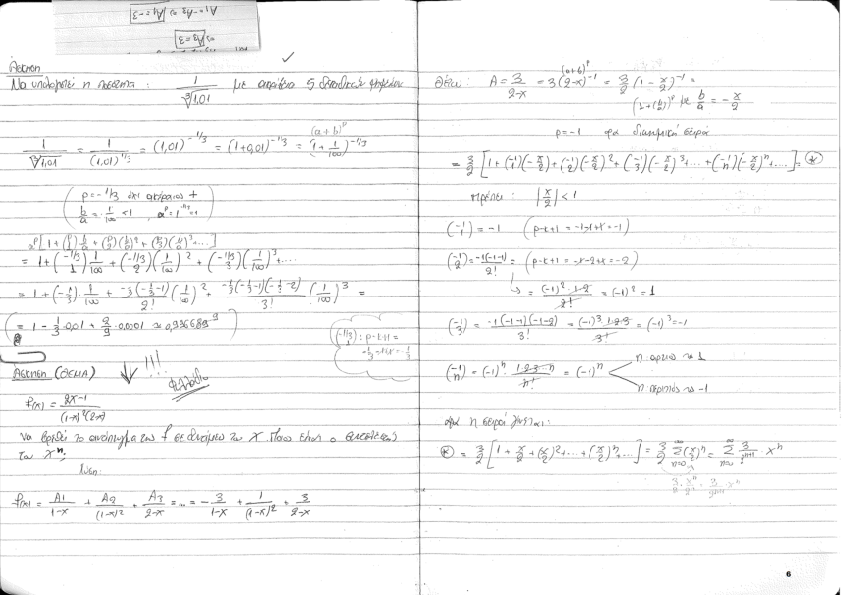 A₁=-A₃ ⇒ A₁=-3
⇒ A₃=3
Άσκηση
Να υπολογιστεί η ποσότητα : 1/∛1,01 με ακρίβεια 5 δεκαδικών ψηφίων
(a+b)^p
1/∛1,01 = 1/(1,01)^{1/3} = (1,01)^{-1/3} = (1+0,01)^{-1/3} = (1+1/100)^{-1/3}
p=-1/3 όχι ακέραιος +
b/a = 1/100 <1 , a^p=1^{-1/3}=1
a^p[1+(p 1)b/a+(p 2)(b/a)²+(p 3)(b/a)³+...]
= 1+(-1/3 1)1/100+(-1/3 2)(1/100)²+(-1/3 3)(1/100)³+...
= 1+(-1/3)·1/100+ -1/3(-1/3-1)/2! (1/100)²+ -1/3(-1/3-1)(-1/3-2)/3! (1/100)³ =
= 1-1/3·0,01+2/9·0,0001 ≈ 0,996689
(-1/3 1): p-k+1=
-1/3-1+1=-1/3
Άσκηση (ΘΕΜΑ) !!!
f(x)= 2x-1/(1-x)²(2-x)
να βρεθεί το ανάπτυγμα της f σε δυνάμεις του x. Ποιος είναι ο συντελεστής
του xⁿ;
Λύση:
f(x)= A₁/1-x + A₂/(1-x)² + A₃/2-x =...= -3/1-x + 1/(1-x)² + 3/2-x
(a+b)^p
Θέτω: A= 3/2-x = 3(2-x)^{-1} = 3/2(1-x/2)^{-1} =
(1+(b/a))^p με b/a = -x/2
p=-1 άρα διωνυμική σειρά
= 3/2[1+(-1 1)(-x/2)+(-1 2)(-x/2)²+(-1 3)(-x/2)³+...+(-1 n)(-x/2)ⁿ+...]= ⊛
πρέπει: |x/2|<1
(-1 1) = -1 (p-k+1=-1-1+1=-1)
(-1 2)= -1(-1-1)/2! = (p-k+1=-1-2+1=-2)
↳ = (-1)²·1·2/2! = (-1)² = 1
(-1 3)= -1(-1-1)(-1-2)/3! = (-1)³·1·2·3/3! = (-1)³=-1
(-1 n) = (-1)ⁿ · 1·2·3···n/n! = (-1)ⁿ
n: άρτιος ~> 1
n: περιττός ~> -1
άρα η σειρά γίνεται:
⊛ = 3/2[1+x/2+(x/2)²+...+(x/2)ⁿ+...] = 3/2 Σ_{n=0}^∞ (x/2)ⁿ = Σ_{n=0}^∞ 3/2ⁿ⁺¹ · xⁿ
3/2 · xⁿ/2ⁿ = 3/2ⁿ⁺¹ · xⁿ
6